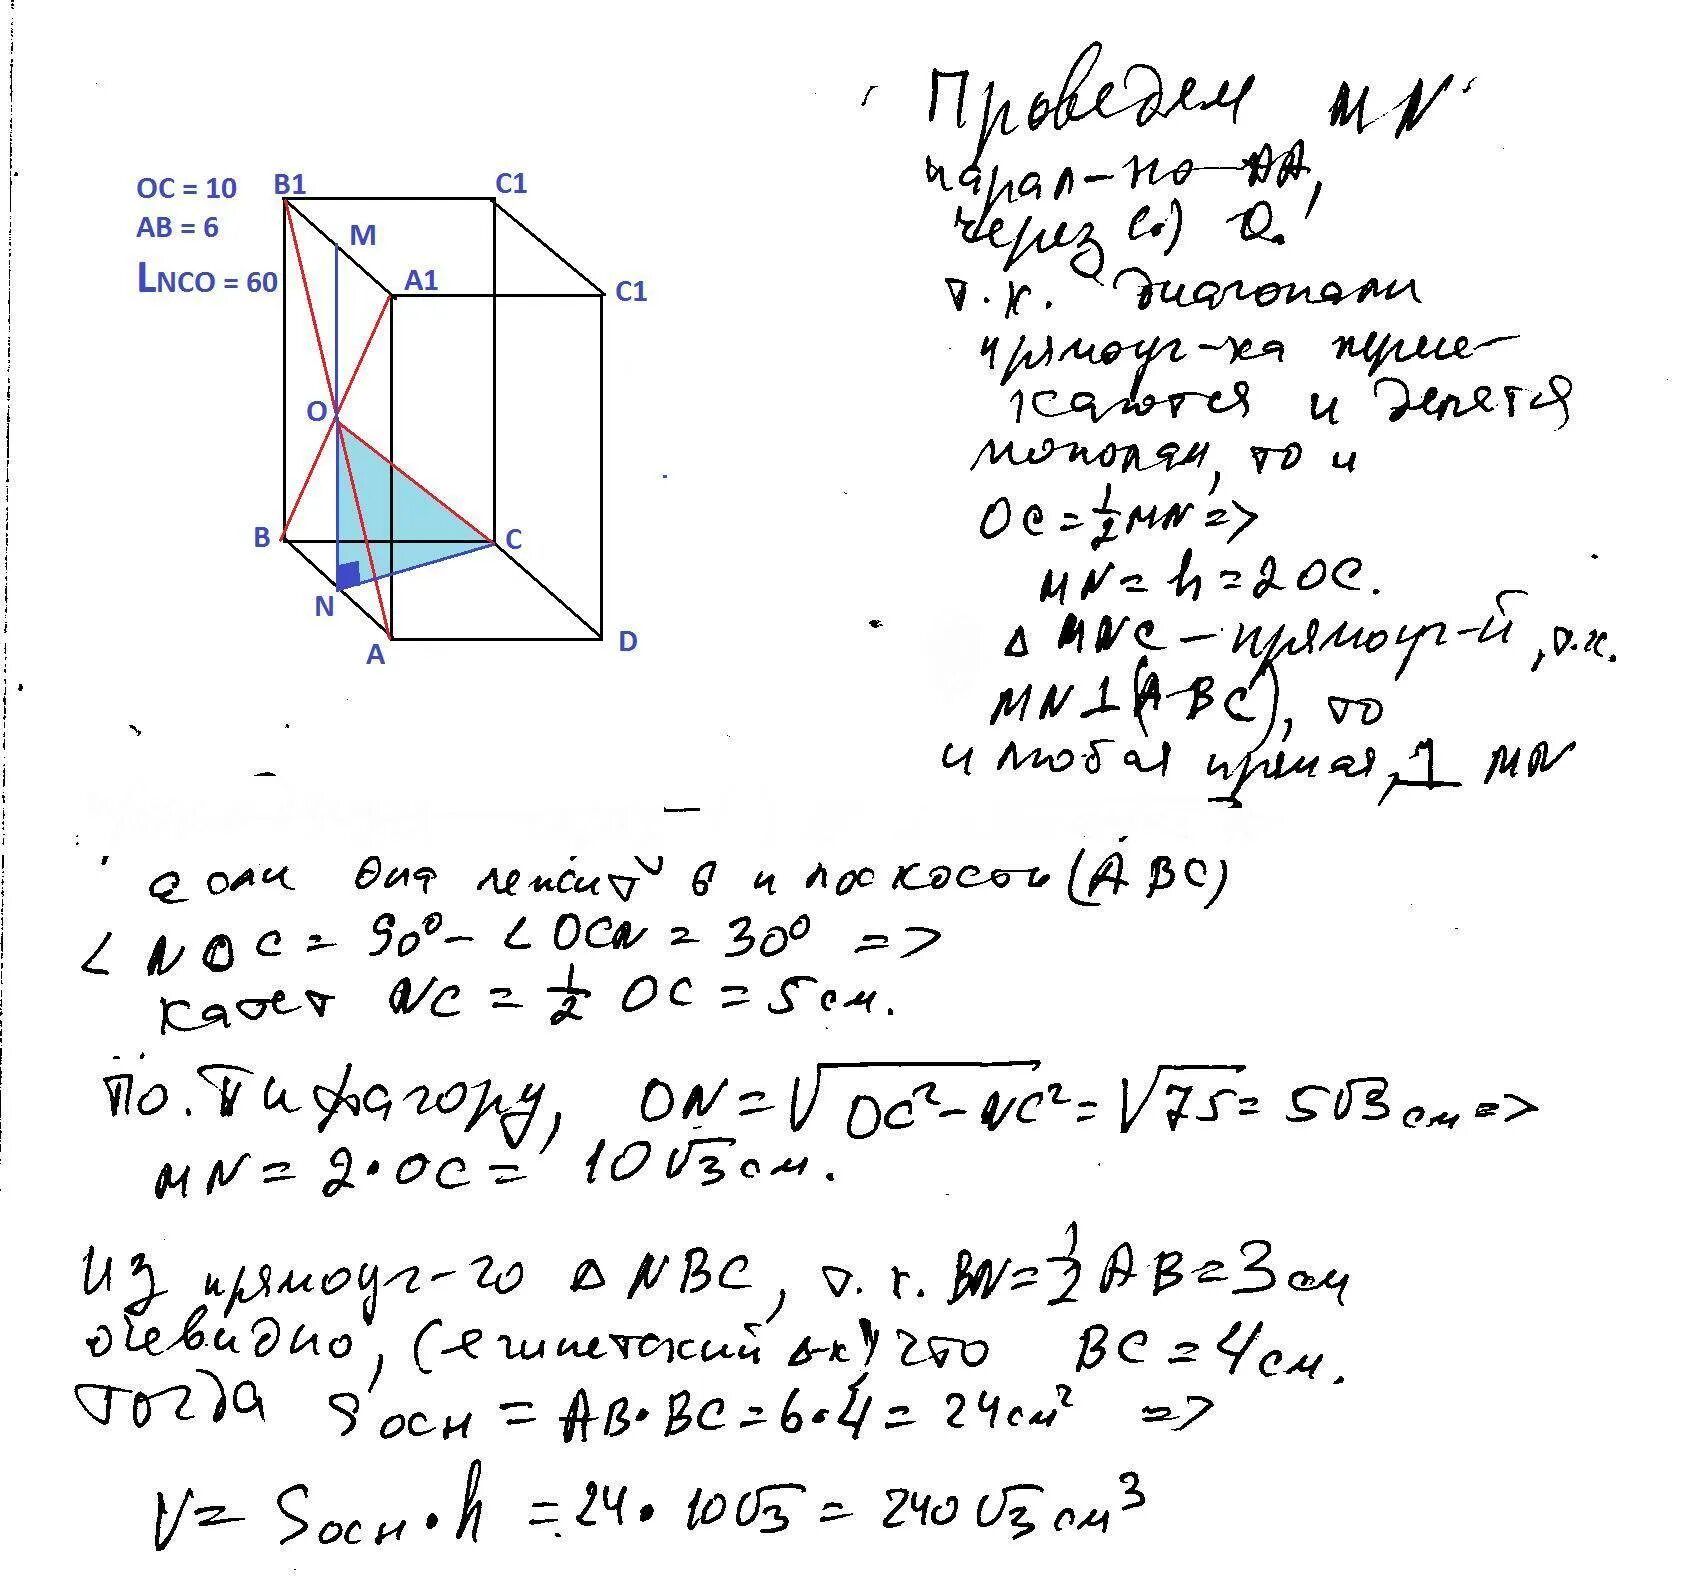 OC = 10
AB = 6
LNCO = 60
B1
C1
M
A1
C1
O
B
C
N
A
D
Проведем MN
парал-но AA₁
через (.) O.
т.к. диагонали
прямоуг-ка пересе-
каются и делятся
пополам, то и
OC = 1/2 MN =>
MN = h = 2OC.
Δ MNC - прямоуг-й, т.к.
MN ⊥ (ABC), то
и любая прямая, ⊥ MN
если она лежит в плоскости (ABC)
∠ NOC = 90° - ∠ OCN = 30° =>
катет NC = 1/2 OC = 5 см.
По. Пифагору, ON = √OC² - NC² = √75 = 5√3 см =>
MN = 2 • OC = 10√3 см.
Из прямоуг-го Δ NBC, т.к. BN = 1/2 AB = 3 см
очевидно, (египетский Δ-к) что BC = 4 см.
тогда Sосн = AB • BC = 6 • 4 = 24 см² =>
V = Sосн • h = 24 • 10√3 = 240√3 см³